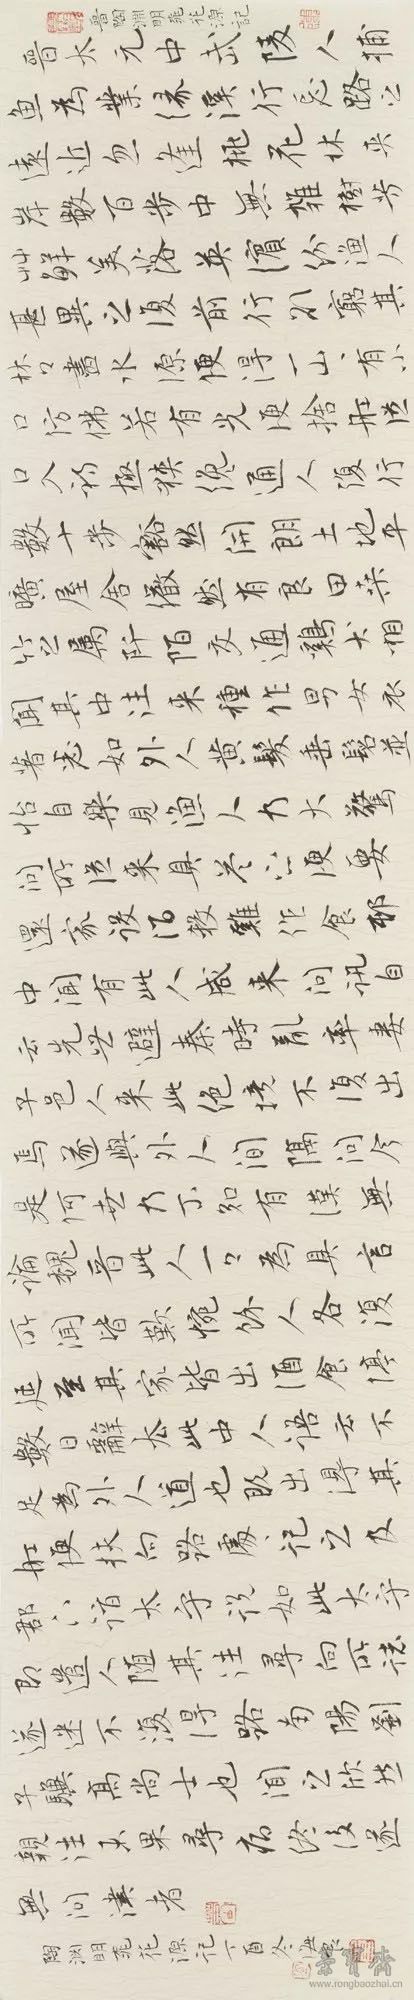 晉陶淵明桃花源記
晉太元中武陵人捕
魚為業緣溪行忘路之
遠近忽逢桃花林夾
岸數百步中無雜樹芳
草鮮美落英繽紛漁人
甚異之復前行欲窮其
林林盡水源便得一山山有小
口彷彿若有光便捨舡從
口入初極狹纔通人復行
數十步豁然開朗土地平
曠屋舍儼然有良田桑
竹之屬阡陌交通鷄犬相
聞其中往來種作男女衣
著悉如外人黃髮垂髫並
怡自樂見漁人乃大驚
問所從來具答之便要
還家設酒殺雞作食邨
中聞有此人咸來問訊自
云先世避秦時亂率妻
子邑人來此絕境不復出
焉遂與外人間隔問今
是何世乃不知有漢無
論魏晉此人一一為具言
所聞皆歎惋餘人各復
延至其家皆出酒食停
數日辭去此中人語云不
足為外人道也既出得其
舡便扶向路處處記之及
郡下詣太守說如此太守
即遣人隨其往尋向所誌
遂迷不復得路南陽劉
子驥高尚士也聞之欣然
親往未果尋病終後遂
無問津者
陶淵明桃花源記丁酉冬
榮寶齋
www.rongbaozhai.cn